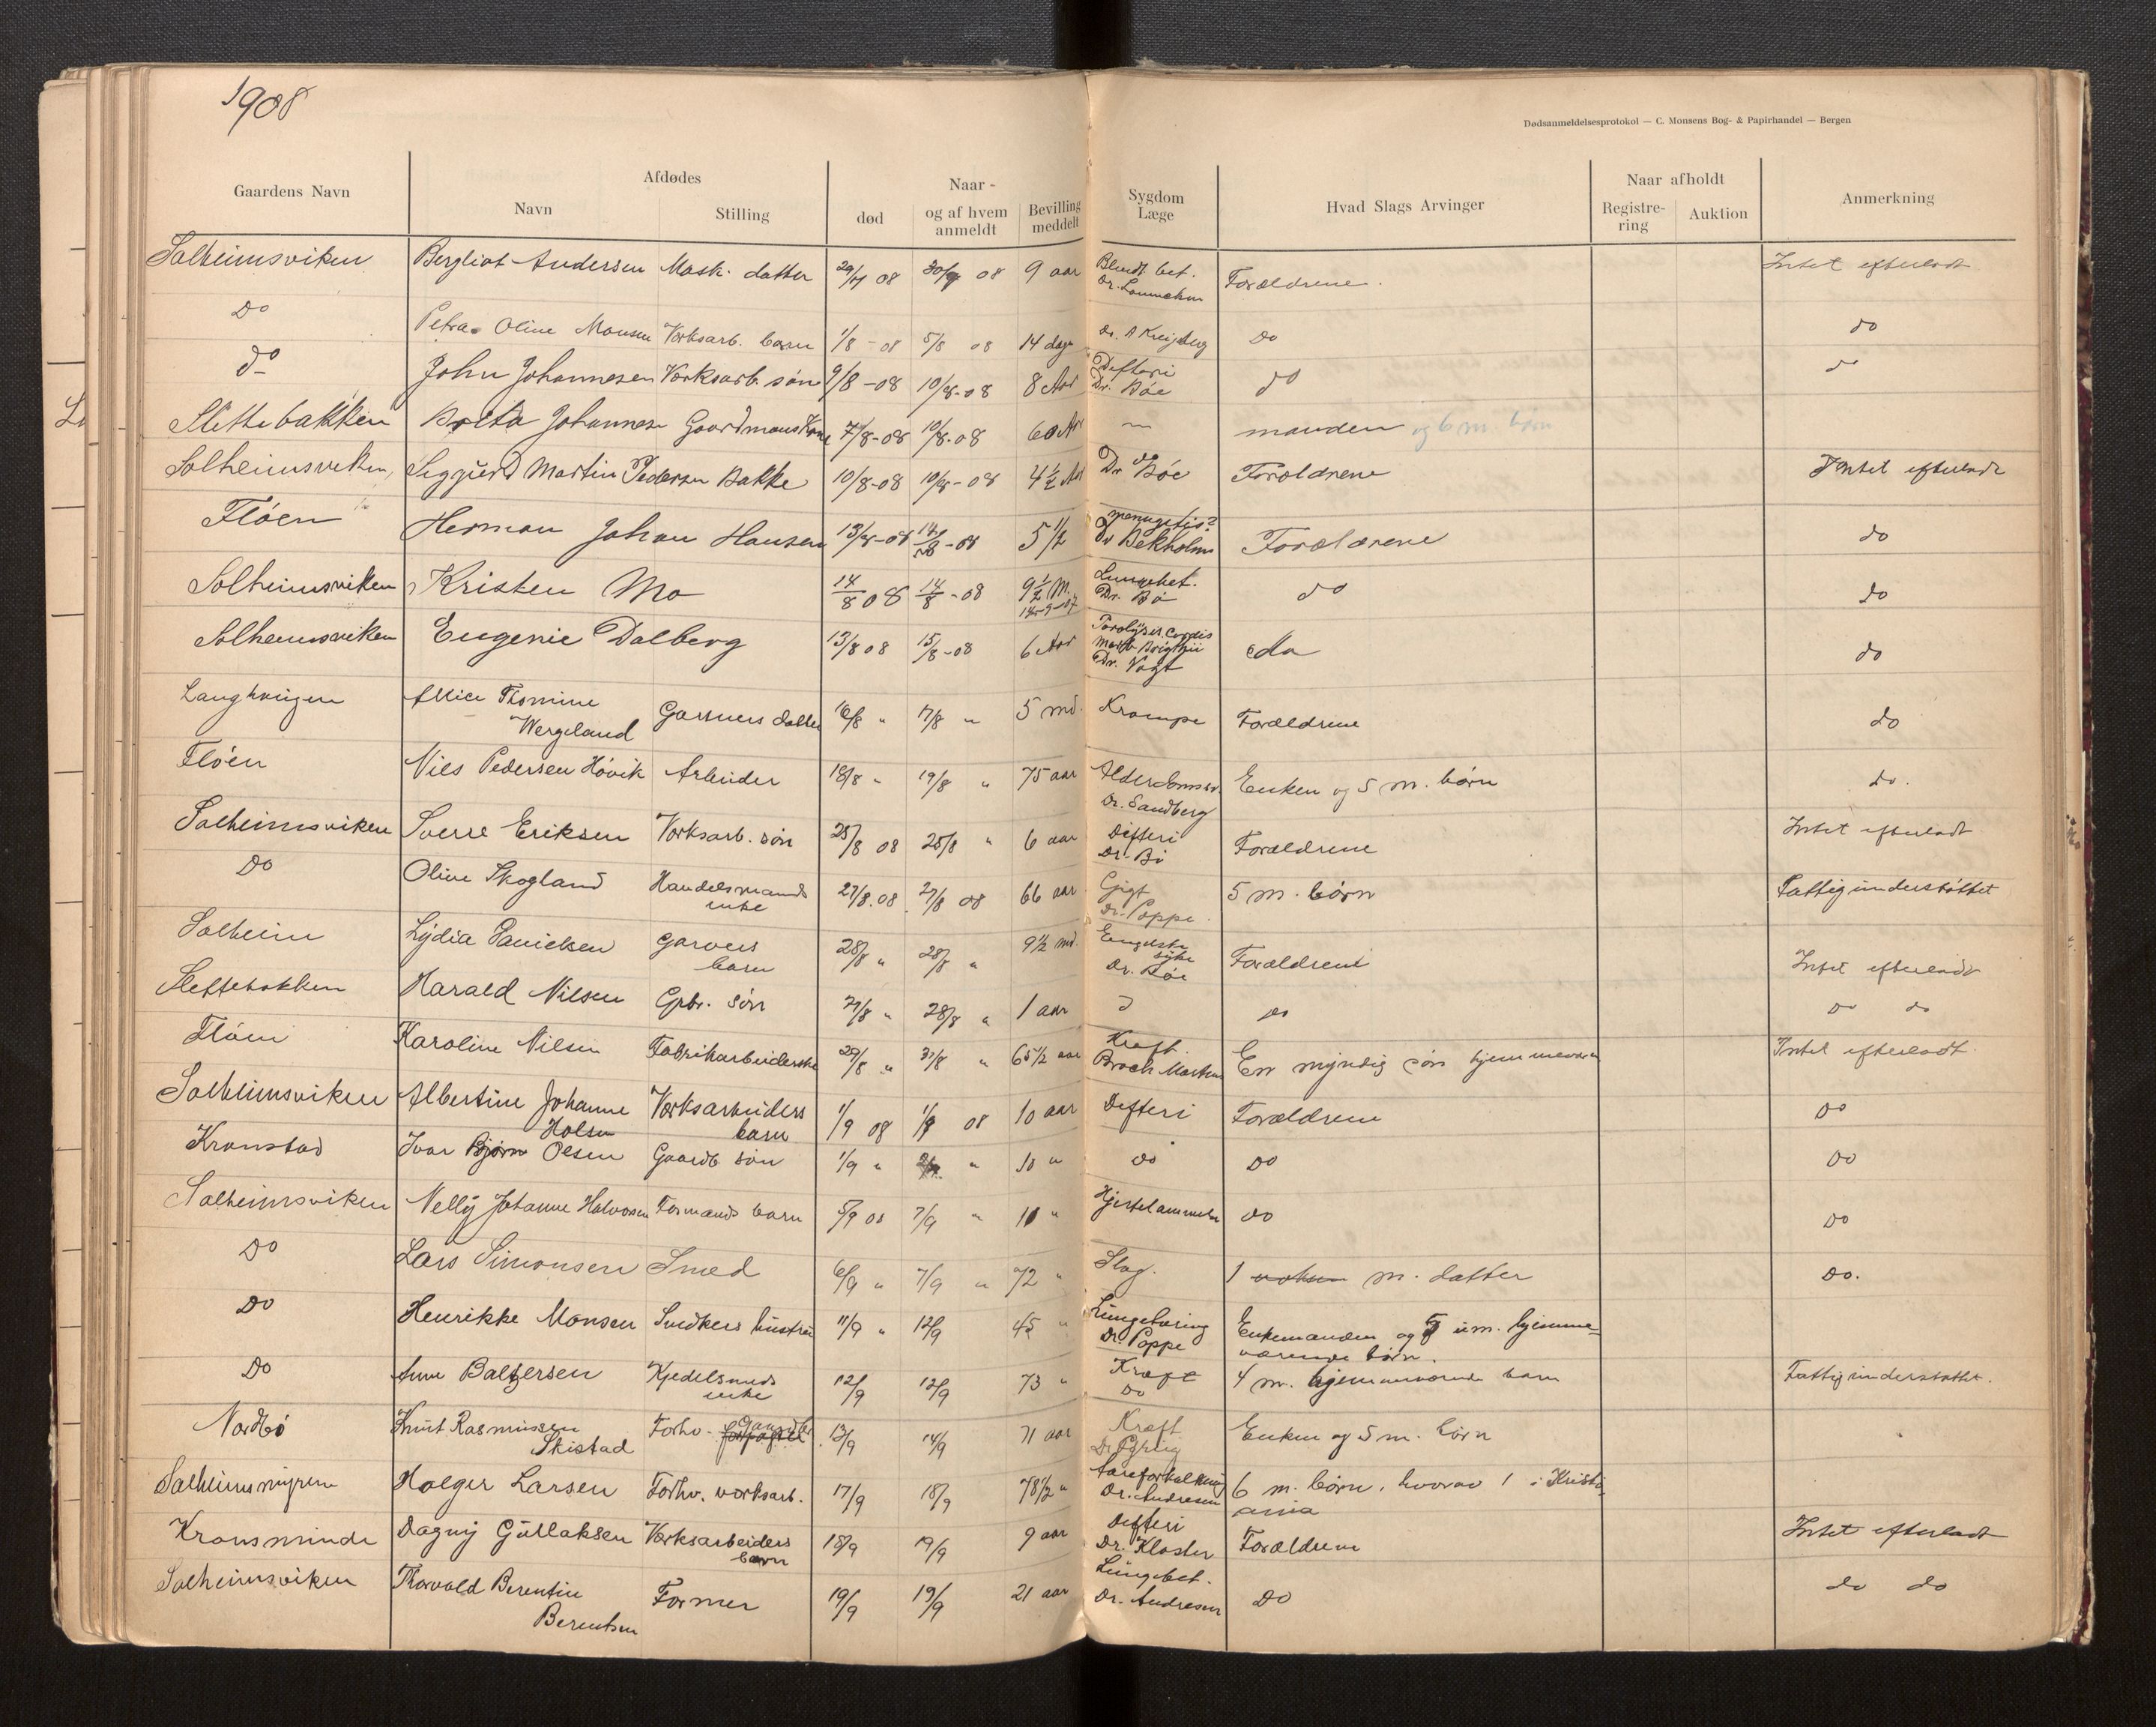 1908
Dødsanmeldelsesprotokol — C. Monsens Bog- & Papirhandel — Bergen
Gaardens Navn
Afdødes
Navn Stilling
Naar -
død og af hvem anmeldt Bevilling meddelt
Sygdom Læge
Hvad Slags Arvinger
Naar afholdt
Registrering Auktion
Anmerkning
Solheimsviken Bergliot Andersen Mask. datter 29/7 08 30/7 08 9 aar Blindt. bet. Dr. Forældrene. Intet efterladt
Do Petra Oline Monsen Verksarb. barn 1/8 - 08 5/8 08 14 dage Dr. Do do
do John Johannesen Verksarb. søn 9/8 - 08 10/8 - 08 8 Aar Difteri Dr. Bøe do do
Slettebakken Johannes Gaardmans Kone 7/8 - 08 10/8 - 08 60 Aar — manden og 6 m. børn
Solheimsviken, Siggurd Martin Pedersen Bakke 10/8 - 08 10/8 - 08 4½ Aar do Dr Bøe Forældrene Intet efterladt
Fløen Herman Johan Hansen 13/8 - 08 14/8 - 08 5 1/2 menengitis? Dr Bekholm Forældrene do
Solheimsviken Kristen Mo 14/8 08 14/8 - 08 9½ M. Lungebet. Dr. Bø do do
Solheimsviken Eugenie Dalberg 13/8 08 15/8 - 08 6 Aar Parolysis Cordis Morb Brigthii Dr. Vogt do do
Langhaugen Alice Thomine Wergeland Garvers datter 16/8 " 17/8 " 5 md. Krampe Forældrene do
Fløen Nils Pedersen Høvik Arbeider 18/8 " 19/8 " 75 aar Alderdomssv. Dr. Sandberg Enken og 5 m. børn do.
Solheimsviken Sverre Eriksen Verksarb. søn 25/8 08 25/8 " 6 aar Difteri Dr. Bø Forældrene Intet efterladt
Do Oline Skogland Handelsmands enke 27/8. 08 27/8 08 66 aar Gigt Dr. Poppe. 5 m. børn Fattigunderstøttet
Solheim Lydia Danielsen Garvers barn 28/8 " 28/8 " 9½ md. Engelske syke Dr. Bøe Forældrene Intet efterladt
Slettebakken Harald Nilsen Gbr. søn 27/8 " 28/8 " 1 aar do do do
Fløen Karoline Nilsen Fabrikarbeiderske 29/8 " 31/8 " 65½ aar Kræft. Broch Martens En myndig søn hjemmeværn Intet efterladt
Solheimsviken Albertine Johanne Holsen Verksarbeiders barn 1/9 08 1/9 08 10 aar Difteri Forældrene Do
Kronstad Ivar Bjørn Olsen Gaardb. søn 1/9 " 2/9 " 10 " do Do Do
Solheimsviken Nelly Johanne Halvorsen Formands barn 5/9 08 7/9 " 11 " Hjertelammelse Do Do
Do Lars Simonsen Smed 6/9 " 7/9 " 72 " Slag. 1 voksen m. datter Do.
Do Henrikke Monsen Snedkers hustru 11/9 " 12/9 45 " Lungetæring Dr. Poppe Enkemanden og 5 um. hjemme= værende børn.
Do Anne Baltzersen Kjedelsmeds enke 12/9 12/9 73 " Kræft Do 4 m. hjemmeværende barn Fattigunderstøttet.
Nordbø Knut Rasmussen Skistad Forhv. Gaardbr 13/9 14/9 71 aar Kræft Dr. Enken og 5 m. børn
Solheimsmyren Holger Larsen Forhv. verksarb. 17/9 18/9 78½ " Aareforkalkning Dr. Andresen 6 m. børn, hvorav 1 i Kristi= ania
Kronsminde Dagny Gullaksen Verksarbeiders barn 18/9 19/9 9 aar Difteri Dr. Kloster Forældrene Intet efterladt
Solheimsviken Thorvald Berentin Berentsen Former 19/9 19/9 21 aar Lungebet. Dr. Andresen Do do do